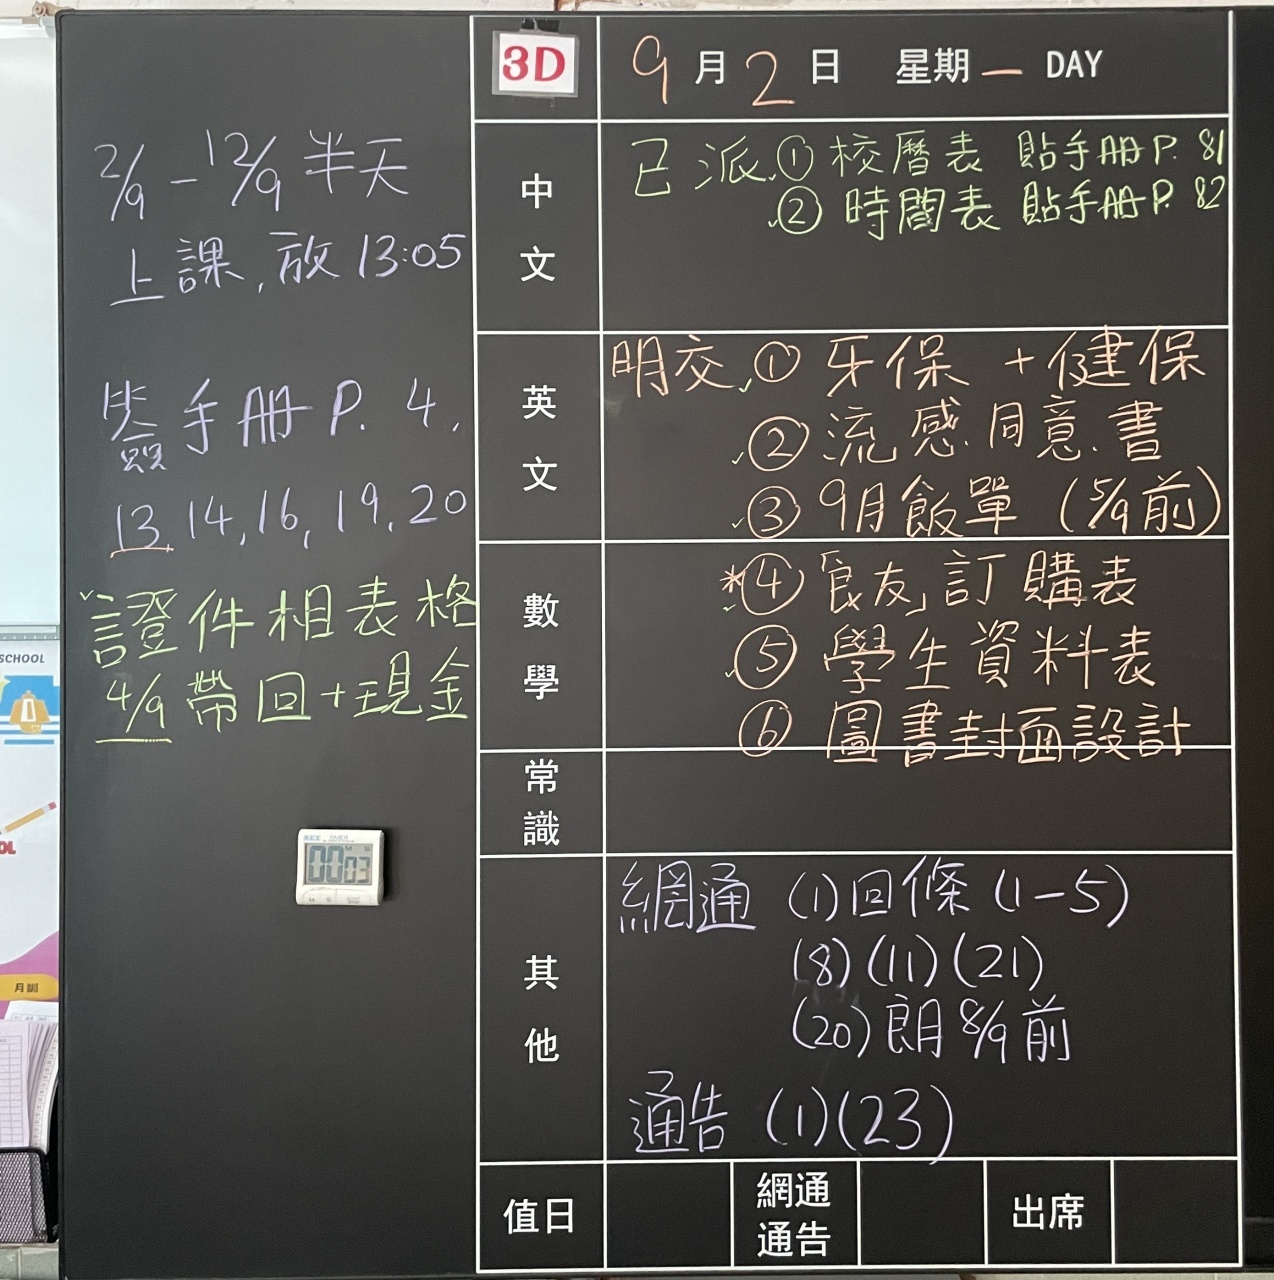 2/9 - 12/9 半天
上課, 放 13:05
簽手冊 P. 4,
13, 14, 16, 19, 20
證件相表格
4/9 帶回 + 現金
SCHOOL
OL
月訓
00 03
3D
9月2日 星期一 DAY
中文
已派 ① 校曆表 貼手冊 P. 81
② 時間表 貼手冊 P. 82
英文
明交 ① 牙保 + 健保
② 流感同意書
③ 9月飯單 (5/9前)
數學
*④ 「良友」訂購表
⑤ 學生資料表
⑥ 圖書封面設計
常識
其他
網通 (1) 回條 (1-5)
(8) (11) (21)
(20) 朗 8/9 前
通告 (1) (23)
值日
網通
通告
出席